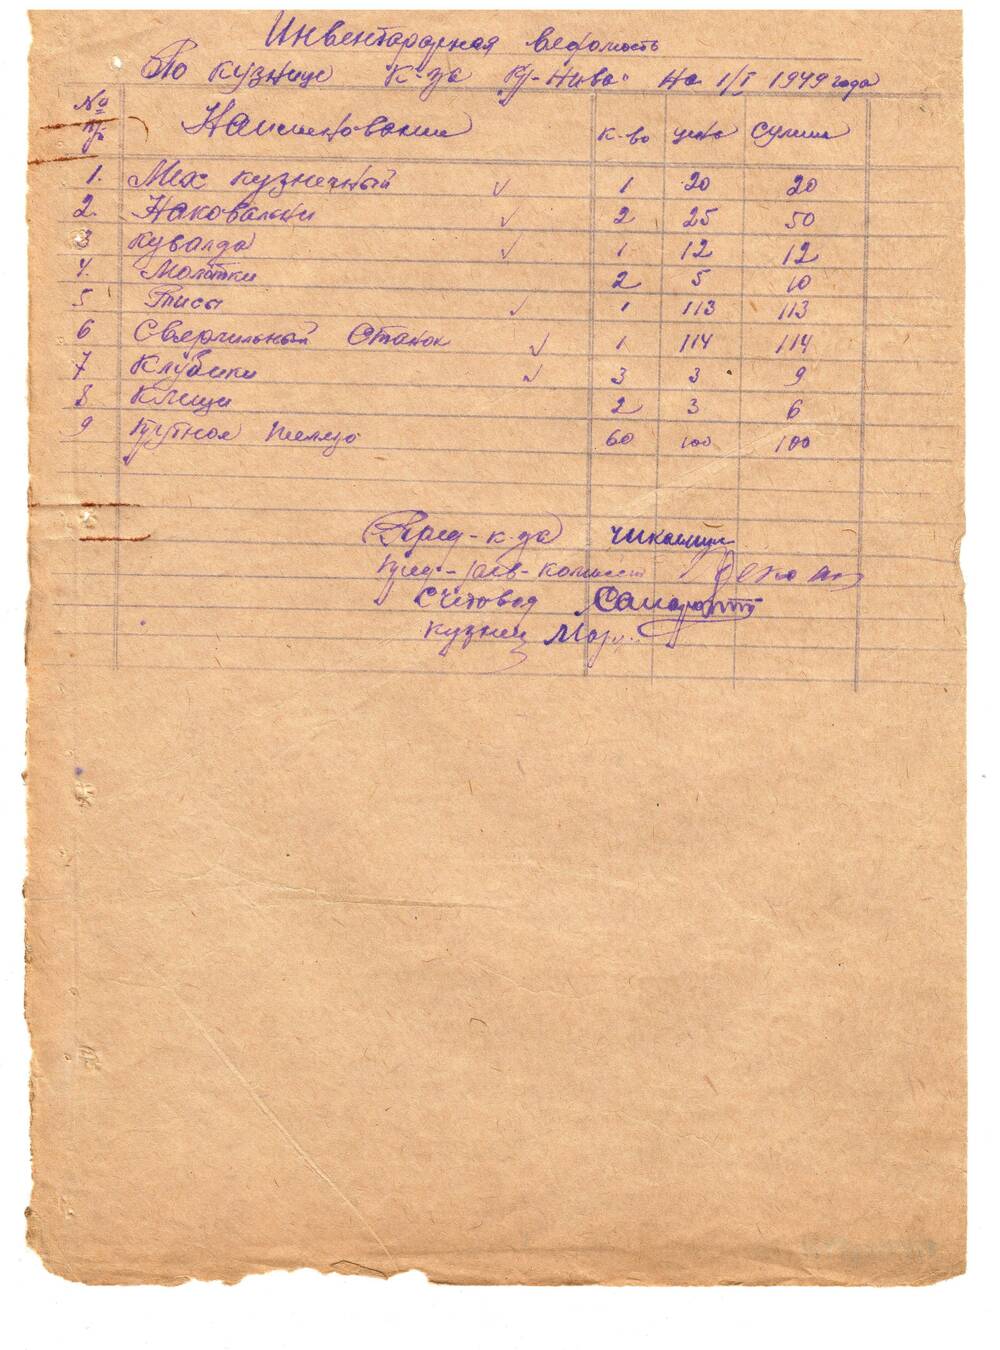 Инвентарарная ведомость
По кузнице к-за "Кр-Нива" на 1/I 1949 года
№№ п/п Наименование к-во цена сумма
1. Мех кузнечный ✓ 1 20 20
2. Наковальни ✓ 2 25 50
3 Кувалда ✓ 1 12 12
4. Молотки 2 5 10
5 Тисы ✓ 1 113 113
6 Сверлильный станок ✓ 1 114 114
7 Клубики ✓ 3 3 9
8 Клещи 2 3 6
9 Прутное железо 60 100 100
Пред-к-за
Пред-рев-комисии
Счетовод
Кузнец